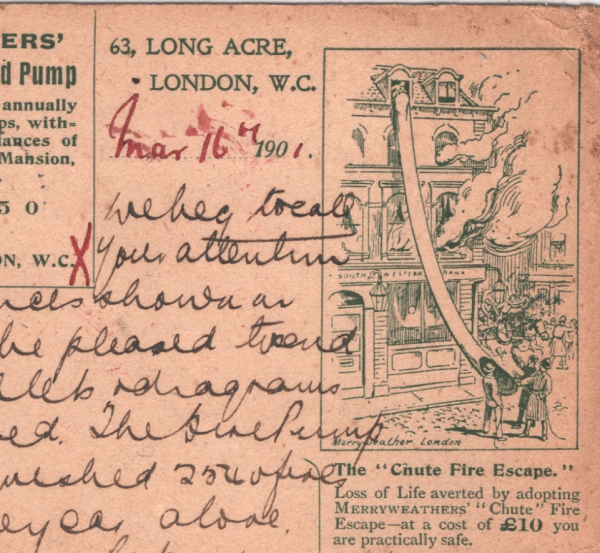 ERS'
d Pump
annually
ps, with=
ances of
Mansion,
5 0
ON, W.C.
63, LONG ACRE,
LONDON, W.C.
Mar 16th 1901.
X
We beg to call
Your attention
nces shown on
be pleased to send
lets & diagrams
ed. The Fire Pump
uished 254 fires
e year alone.
SOUTH WESTERN BANK
Merryweather London
The "Chute Fire Escape."
Loss of Life averted by adopting
MERRYWEATHERS' "Chute" Fire
Escape—at a cost of £10 you
are practically safe.